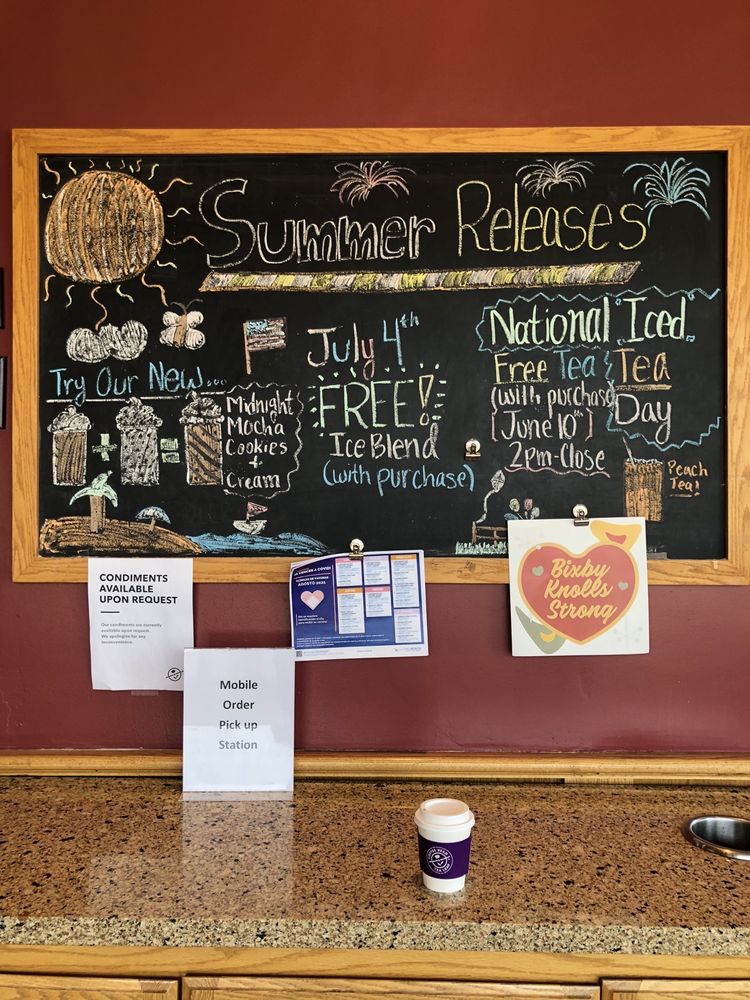 Summer Releases
Try Our New...
Midnight
Mocha
Cookies
+
Cream
+
=
July 4th
FREE!
Ice Blend
(with purchase)
National Iced
Tea
Day
Free Tea
(with purchase)
[June 10th]
2pm-Close
Peach
Tea!
CONDIMENTS
AVAILABLE
UPON REQUEST
Our condiments are currently
available upon request.
We apologize for any
inconvenience.
Mobile
Order
Pick up
Station
AGOSTO 2021
Bixby
Knolls
Strong